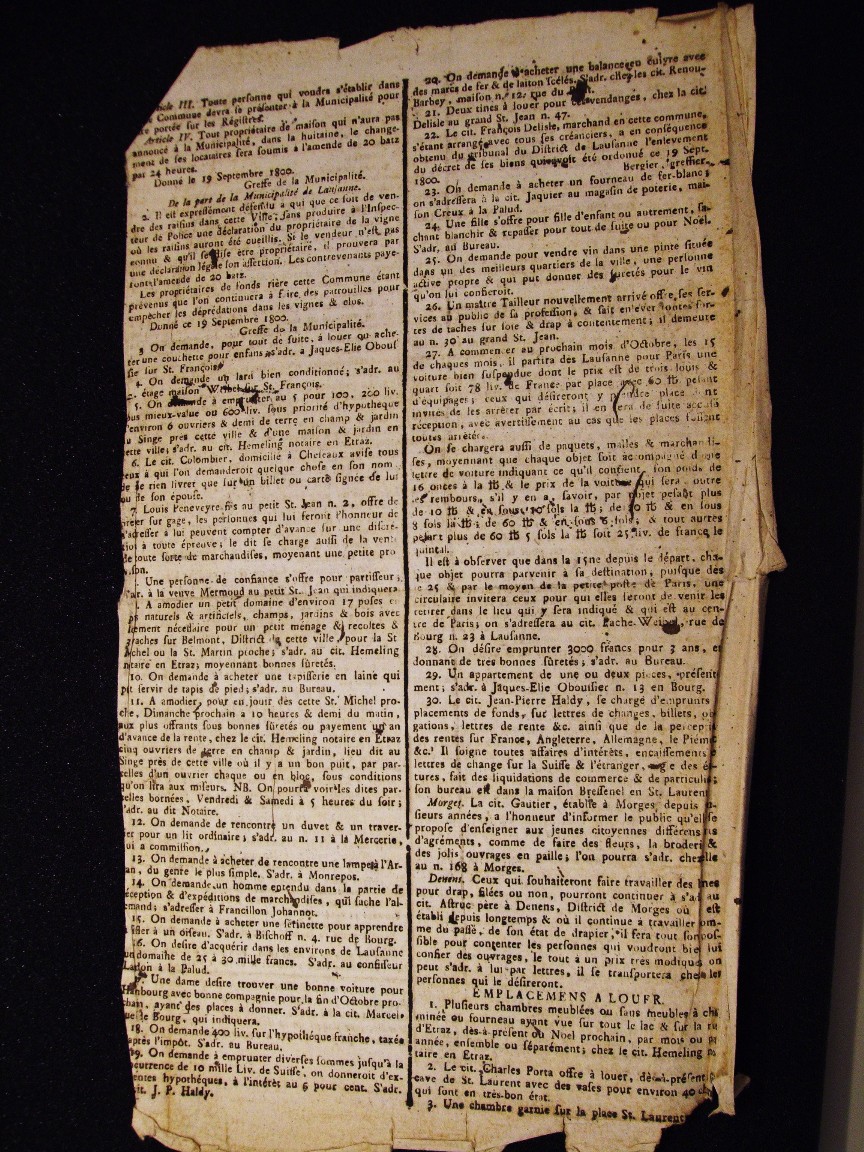 Article III. Toute personne qui voudra s'établir dans
Commune devra se présenter à la Municipalité pour
portée sur les Régistres.
Article IV. Tout propriétaire de maison qui n'aura pas
annoncé à la Municipalité, dans la huitaine, le change-
ment de ses locataires sera soumis à l'amende de 20 batz
par 24 heures.
Donné le 19 Septembre 1800.
Greffe de la Municipalité.
De la part de la Municipalité de Lausanne.
2. Il est expressément défendu à qui que ce soit de ven-
dre des raisins dans cette Ville, sans produire à l'Inspec-
teur de Police une déclaration du propriétaire de la vigne
où les raisins auront été cueillis. Si le vendeur n'est pas
connu & qu'il se dise être propriétaire, il prouvera par
une déclaration légale son assertion. Les contrevenants paye-
ront l'amende de 20 batz.
Les propriétaires de fonds rière cette Commune étant
prévenus que l'on continuera à faire des patrouilles pour
empêcher les déprédations dans les vignes & clos.
Donné ce 19 Septembre 1800.
Greffe de la Municipalité.
3. On demande, pour tout de suite, à louer ou ache-
ter une couchette pour enfans; s'adr. a Jaques-Elie Obous
sier sur St. François.
4. On demande un lard bien conditionné; s'adr. au
étage maison Weibel sur St. François.
5. On demande à emprunter au 5 pour 100, 200 liv.
ous mieux-value ou 600 liv. sous priorité d'hypotheque
d'environ 6 ouvriers & demi de terre en champ & jardin
au Singe près cette ville & d'une maison & jardin en
cette ville; s'adr. au cit. Hemeling notaire en Etraz.
6. Le cit. Colombier, domicilié à Cheseaux avise tous
ceux à qui l'on demanderoit quelque chose en son nom
de ne rien livrer que sur un billet ou carte signée de lui
ou de son épouse.
7. Louis Peneveyre fils au petit St. Jean n. 2, offre de
prêter sur gage, les personnes qui lui feront l'honneur de
s'adresser à lui peuvent compter d'avance sur une discré-
tion à toute épreuve; le dit se charge aussi de la vente
de toute sorte de marchandises, moyennant une petite pro
Une personne de confiance s'offre pour partisseur;
s'adr. à la veuve Mermoud au petit St. Jean qui indiquera
A amodier un petit domaine d'environ 17 poses en
naturels & artificiels, champs, jardins & bois avec
nécessaire pour un petit ménage & recoltes &
sur Belmont, District de cette ville, pour la St
Michel ou la St Martin proche; s'adr. au cit. Hemeling
notaire en Etraz; moyennant bonnes sûretés.
10. On demande à acheter une tapisserie en laine qui
pût servir de tapis de pied; s'adr. au Bureau.
11. A amodier, pour en jouir dès cette St. Michel pro-
che, Dimanche prochain à 10 heures & demi du matin,
aux plus offrants sous bonnes sûretés ou payement un an
d'avance de la rente, chez le cit. Hemeling notaire en Etraz
cinq ouvriers de terre en champ & jardin, lieu dit au
Singe près de cette ville où il y a un bon puit, par par-
celles d'un ouvrier chaque ou en bloc, sous conditions
qu'on lira aux miseurs. NB. On pourra voir les dites par-
celles bornées, Vendredi & Samedi à 5 heures du soir;
s'adr. au dit Notaire.
12. On demande de rencontre un duvet & un traver-
sier pour un lit ordinaire; s'adr. au n. 11 à la Mercerie,
qui a commission.
13. On demande à acheter de rencontre une lampe à l'Ar-
gan, du genre le plus simple. S'adr. à Monrepos.
14. On demande un homme entendu dans la partie de
réception & d'expéditions de marchandises, qui sache l'al-
lemand; s'adresser à Francillon Johannot.
15. On demande à acheter une serinette pour apprendre
à siffler à un oiseau. S'adr. à Bischoff n. 4. rue de Bourg.
16. On desire d'acquérir dans les environs de Lausanne
un domaine de 25 à 30 mille francs. S'adr. au confiseur
Ladon à la Palud.
17. Une dame desire trouver une bonne voiture pour
Hambourg avec bonne compagnie pour la fin d'Octobre pro-
chain, ayant des places à donner. S'adr. à la cit. Marcel
rue de Bourg, qui indiquera.
18. On demande 400 liv. sur l'hypothéque franche, taxée
après l'impôt. S'adr. au Bureau.
19. On demande à emprunter diverses sommes jusqu'à la
concurrence de 10 mille Liv. de Suisse, on donneroit d'ex-
cellentes hypothéques, à l'intérêt au 6 pour cent. S'adr.
cit. J. P. Haldy.
20. On demande à acheter une balance en cuivre avec
des marcs de fer & de laiton scélés. S'adr. chez les cit. Renou-
Barbey, maison n. 12. rue du
21. Deux tines à louer pour les vendanges, chez la cit.
Delisle au grand St. Jean n. 47.
22. Le cit. François Delisle, marchand en cette commune,
s'étant arrangé avec tous ses créanciers, a en conséquence
obtenu du tribunal du District de Lausanne l'enlevement
du décret de ses biens qui avoit été ordonné ce 19 Sept.
1800. Bergier, greffier.
23. On demande à acheter un fourneau de fer-blanc;
on s'adressera à la cit. Jaquier au magasin de poterie, mai-
son Creux à la Palud.
24. Une fille s'offre pour fille d'enfant ou autrement, sa-
chant blanchir & repasser pour tout de suite ou pour Noël.
S'adr. au Bureau.
25. On demande pour vendre vin dans une pinte située
dans un des meilleurs quartiers de la ville, une personne
active propre & qui put donner des suretés pour le vin
qu'on lui confieroit.
26. Un maître Tailleur nouvellement arrivé offre ses ser-
vices au public de sa profession, & fait enlever toutes sor-
tes de taches sur soie & drap à contentement; il demeure
au n. 30 au grand St. Jean.
27. A commencer au prochain mois d'Octobre, les 15
de chaques mois, il partira dès Lausanne pour Paris une
voiture bien suspendue dont le prix est de trois louis &
quart soit 78 liv. de France par place avec 60 ℔ pesant
d'équipages; ceux qui désireront y prendre place sont
invités de les arrêter par écrit; il en sera de suite accusé
réception, avec avertissement au cas que les places fussent
toutes arrêtées.
On se chargera aussi de paquets, malles & marchandi-
ses, moyennant que chaque objet soit accompagné d'une
lettre de voiture indiquant ce qu'il contient, son poids de
16 onces à la ℔ & le prix de la voiture qui sera, outre
les rembours, s'il y en a, savoir, par objet pesant plus
de 10 ℔ & en sous, 10 sols la ℔; de 30 ℔ & en sous
8 sols la ℔; de 60 ℔ & en sous 6 sols; & tout autres
pesant plus de 60 ℔ 5 sols la ℔ soit 25 liv. de france le
quintal.
Il est à observer que dans la 15ne depuis le départ, cha-
que objet pourra parvenir à sa destination, puisque dès
le 25 & par le moyen de la petite poste de Paris, une
circulaire invitera ceux pour qui elles seront de venir les
retirer dans le lieu qui y sera indiqué & qui est au cen-
tre de Paris; on s'adressera au cit. Pache-Weibel, rue de
Bourg n. 23 à Lausanne.
28. On désire emprunter 3000 francs pour 3 ans, en
donnant de tres bonnes sûretés; s'adr. au Bureau.
29. Un appartement de une ou deux pieces, présent
ment; s'adr. à Jaques-Elie Oboussier n. 13 en Bourg.
30. Le cit. Jean-Pierre Haldy, se charge d'emprunts
placements de fonds, sur lettres de changes, billets,
gations, lettres de rente &c. ainsi que de la percepti
des rentes sur France, Angleterre, Allemagne, le Piémo
&c. Il soigne toutes affaires d'intérêts, encaissements
lettres de change sur la Suisse & l'étranger,
tures, fait des liquidations de commerce & de particuli
son bureau est dans la maison Bressenel en St. Laurent
Morges. La cit. Gautier, établie à Morges depuis
sieurs années, a l'honneur d'informer le public qu'elle se
propose d'enseigner aux jeunes citoyennes différens
d'agréments, comme de faire des fleurs, la broderie &
des jolis ouvrages en paille; l'on pourra s'adr. chez elle
au n. 168 à Morges.
Denens. Ceux qui souhaiteront faire travailler des laines
pour drap, filées ou non, pourront continuer à s'adr. au
cit. Astruc père à Denens, District de Morges où est
établi depuis longtemps & où il continue à travailler com-
me du passé, de son état de drapier, il fera tout son pos-
sible pour contenter les personnes qui voudront bien lui
confier des ouvrages, le tout à un prix très modique, on
peut s'adr. à lui par lettres, il se transportera chez les
personnes qui le désireront.
EMPLACEMENS A LOUER.
1. Plusieurs chambres meublées ou sans meubles à che
minée ou fourneau ayant vue sur tout le lac & sur la rue
d'Etraz, dès-à-présent ou Noel prochain, par mois ou par
année, ensemble ou séparément; chez le cit. Hemeling no
taire en Etraz.
2. Le cit. Charles Porta offre à louer, dès-à-présent,
cave de St. Laurent avec des vases pour environ 40 chars
qui sont en très-bon état.
3. Une chambre garnie sur la place St. Laurent